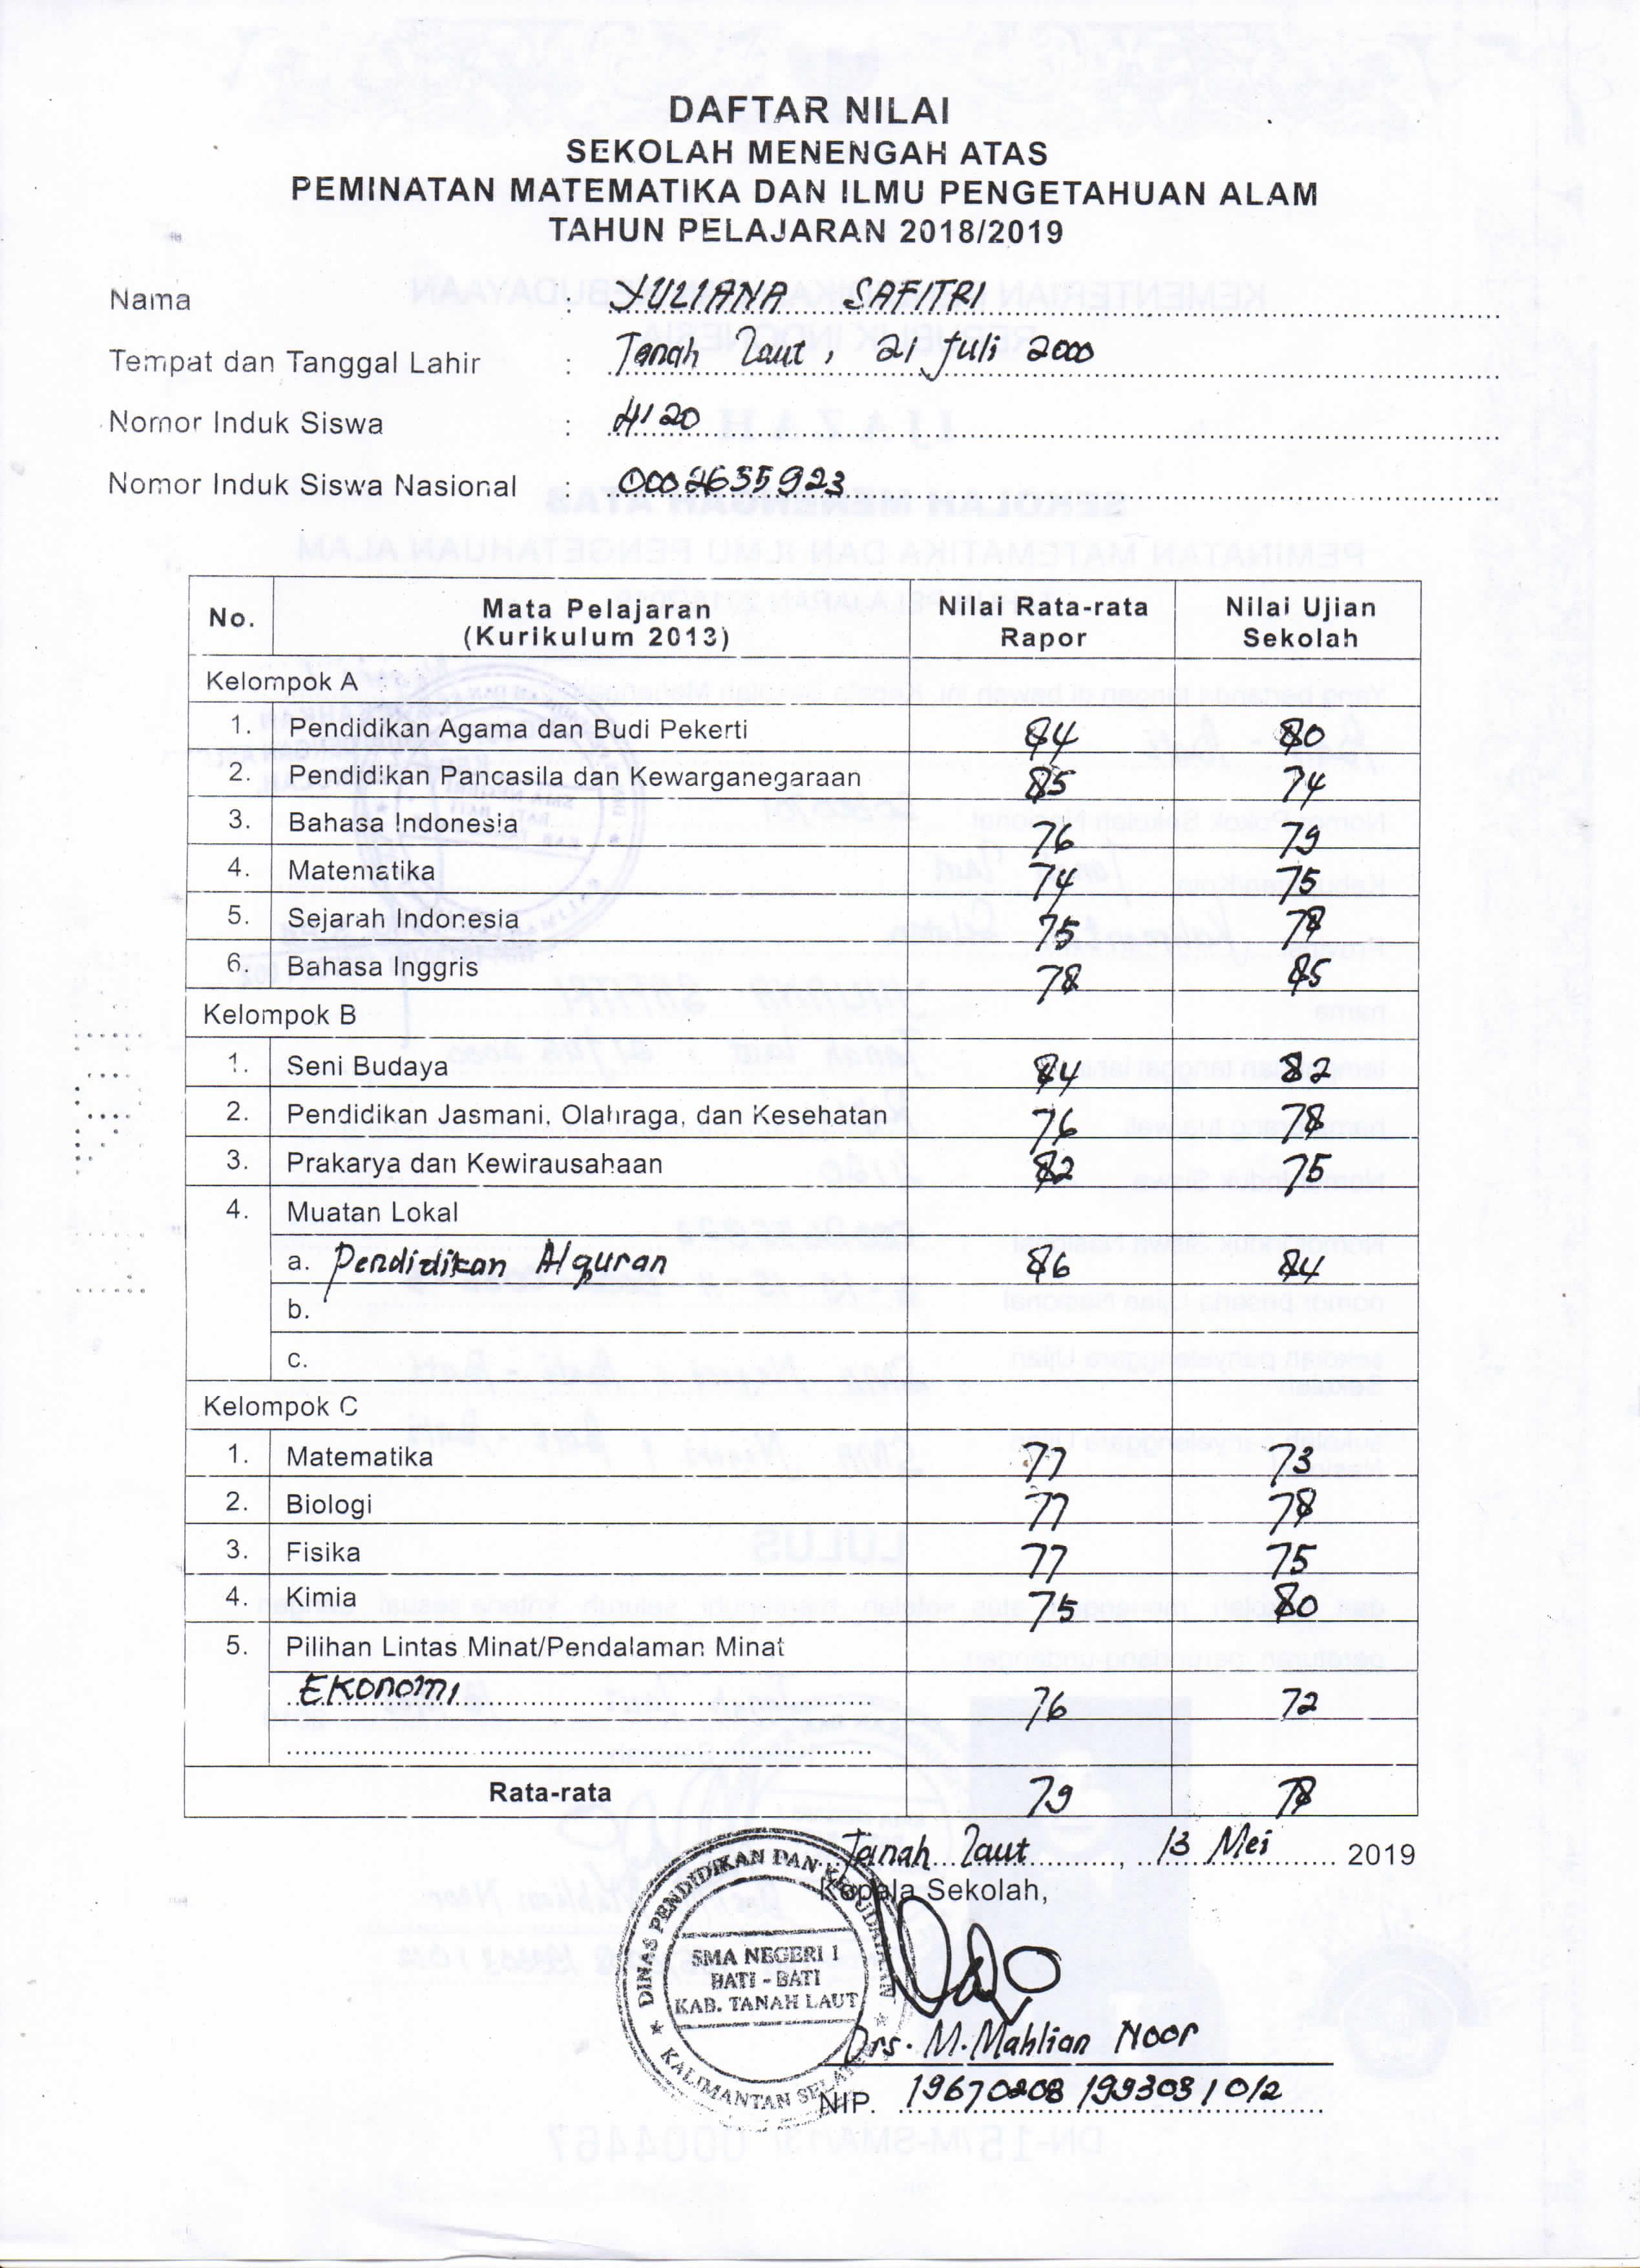 DAFTAR NILAI
SEKOLAH MENENGAH ATAS
PEMINATAN MATEMATIKA DAN ILMU PENGETAHUAN ALAM
TAHUN PELAJARAN 2018/2019
Nama : YULIANA SAFITRI
Tempat dan Tanggal Lahir : Tanah Laut, 21 Juli 2000
Nomor Induk Siswa : 4120
Nomor Induk Siswa Nasional : 0002655923
No. Mata Pelajaran (Kurikulum 2013) Nilai Rata-rata Rapor Nilai Ujian Sekolah
Kelompok A
1. Pendidikan Agama dan Budi Pekerti 84 80
2. Pendidikan Pancasila dan Kewarganegaraan 85 74
3. Bahasa Indonesia 76 79
4. Matematika 74 75
5. Sejarah Indonesia 75 78
6. Bahasa Inggris 78 85
Kelompok B
1. Seni Budaya 84 82
2. Pendidikan Jasmani, Olahraga, dan Kesehatan 76 78
3. Prakarya dan Kewirausahaan 82 75
4. Muatan Lokal
a. Pendidikan Alquran 86 84
b.
c.
Kelompok C
1. Matematika 77 73
2. Biologi 77 78
3. Fisika 77 75
4. Kimia 75 80
5. Pilihan Lintas Minat/Pendalaman Minat
Ekonomi 76 72
Rata-rata 79 78
Tanah Laut, 13 Mei 2019
Kepala Sekolah,
DINAS PENDIDIKAN DAN KEBUDAYAAN
SMA NEGERI 1
BATI - BATI
KAB. TANAH LAUT
KALIMANTAN SELATAN
Drs. M. Mahlian Noor
NIP. 19670208 199303 1 012